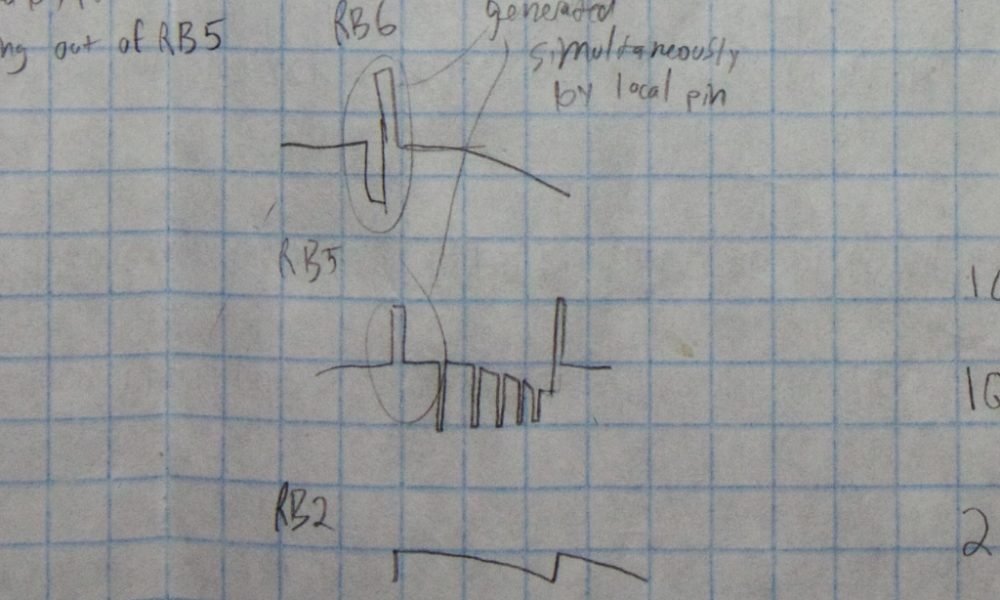 ng out of RB5
RB6
generated
simultaneously
by local pin
RB5
RB2
2